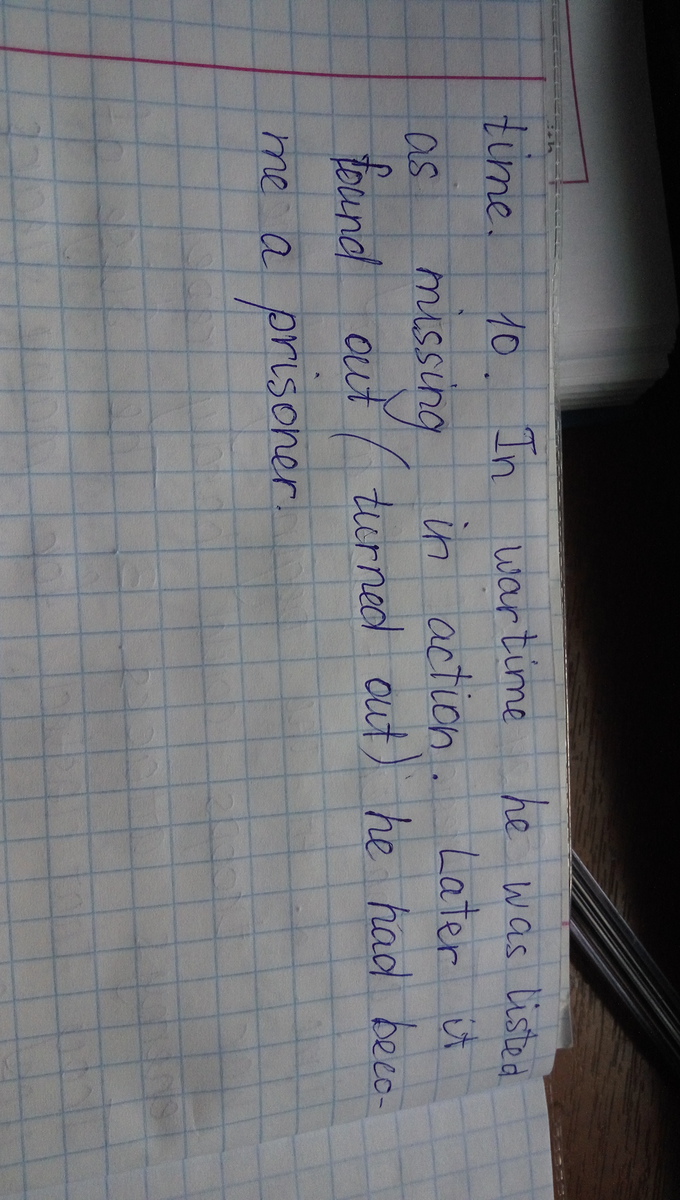 time. 10. In wartime he was listed
as missing in action. Later it
found out (turned out) he had beco-
me a prisoner.